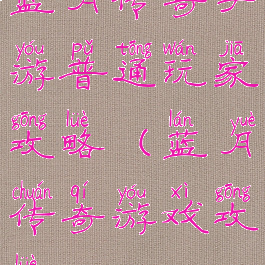 蓝月传奇手
yóu pǔ tōng wán jiā
游普通玩家
gōng lüè lán yuè
攻略（蓝月
chuán qí yóu xì gōng
传奇游戏攻
lüè